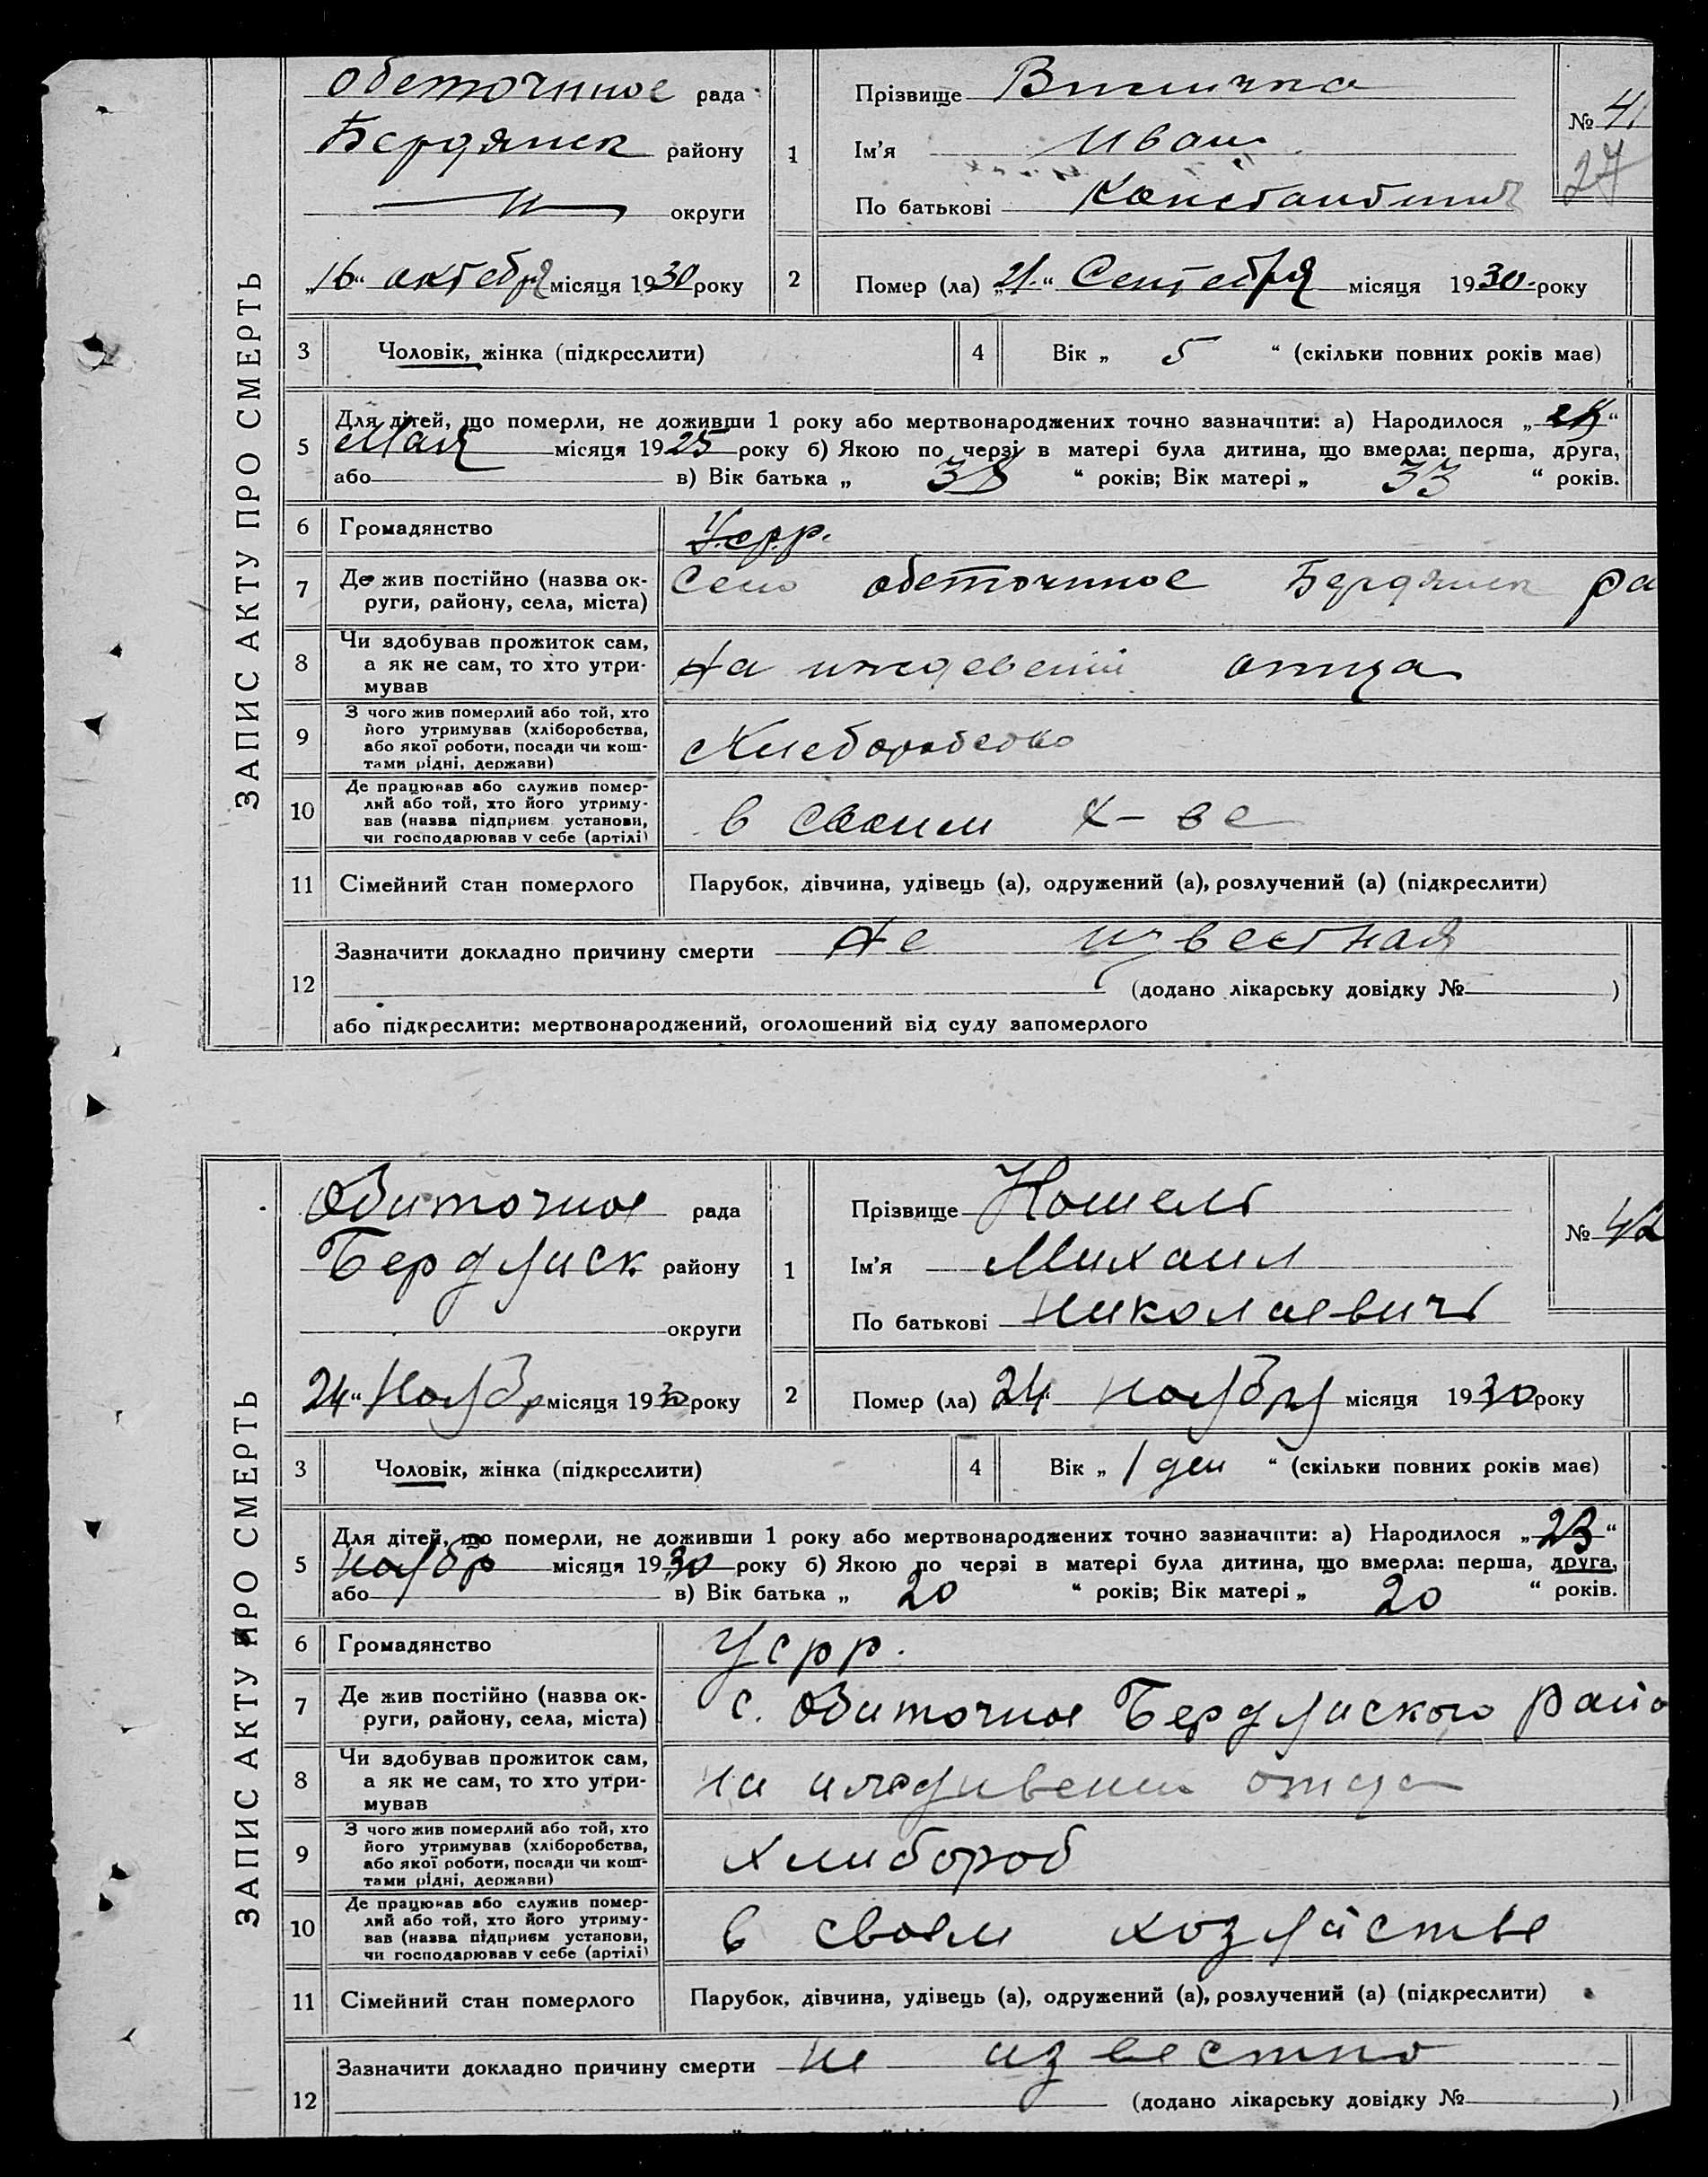 ЗАПИС АКТУ ПРО СМЕРТЬ
обеточиное рада
Бердянск району
— " — округи
„16“ октебря місяця 1930 року
1
Прізвище
Ім'я Иван
По батькові Константинов
№ 41
27
2
Помер (ла) „21“ Сентебря місяця 1930 року
3 Чоловік, жінка (підкреслити)
4 Вік „ 5 “ (скільки повних років має)
5 Для дітей, що померли, не доживши 1 року або мертвонароджених точно зазначити: а) Народилося „ “
Мая місяця 1925 року б) Якою по черзі в матері була дитина, що вмерла: перша, друга,
або в) Вік батька „ 38 “ років; Вік матері „ 33 “ років.
6 Громадянство У.с.р.р.
7 Де жив постійно (назва округи, району, села, міста) Село обеточиное Бердянск ра
8 Чи здобував прожиток сам, а як не сам, то хто утримував На иждевении отца
9 З чого жив померлий або той, хто його утримував (хліборобства, або якої роботи, посади чи коштами рідні, держави) Хлеборобство
10 Де працював або служив померлий або той, хто його утримував (назва підприєм. установи, чи господарював у себе (артілі) в своим х-ве
11 Сімейний стан померлого Парубок, дівчина, удівець (а), одружений (а), розлучений (а) (підкреслити)
12 Зазначити докладно причину смерти Не известная
(додано лікарську довідку № )
або підкреслити: мертвонароджений, оголошений від суду запомерлого
ЗАПИС АКТУ ПРО СМЕРТЬ
Обиточное рада
Бердянск району
округи
24“ Ноябр місяця 1930 року
1
Прізвище Кошель
Ім'я Михаил
По батькові Николаевичь
№ 42
2
Помер (ла) 24 ноября місяця 1930 року
3 Чоловік, жінка (підкреслити)
4 Вік „ 1 ден “ (скільки повних років має)
5 Для дітей, що померли, не доживши 1 року або мертвонароджених точно зазначити: а) Народилося „23“
ноябр місяця 1930 року б) Якою по черзі в матері була дитина, що вмерла: перша, друга,
або в) Вік батька „ 20 “ років; Вік матері „ 20 “ років.
6 Громадянство Усрр.
7 Де жив постійно (назва округи, району, села, міста) с. Обиточное Бердянского райо
8 Чи здобував прожиток сам, а як не сам, то хто утримував на иждивении отца
9 З чого жив померлий або той, хто його утримував (хліборобства, або якої роботи, посади чи коштами рідні, держави) хлибороб
10 Де працював або служив померлий або той, хто його утримував (назва підприєм. установи, чи господарював у себе (артілі) в своем хозяйстве
11 Сімейний стан померлого Парубок, дівчина, удівець (а), одружений (а), розлучений (а) (підкреслити)
12 Зазначити докладно причину смерти не известно
(додано лікарську довідку № )